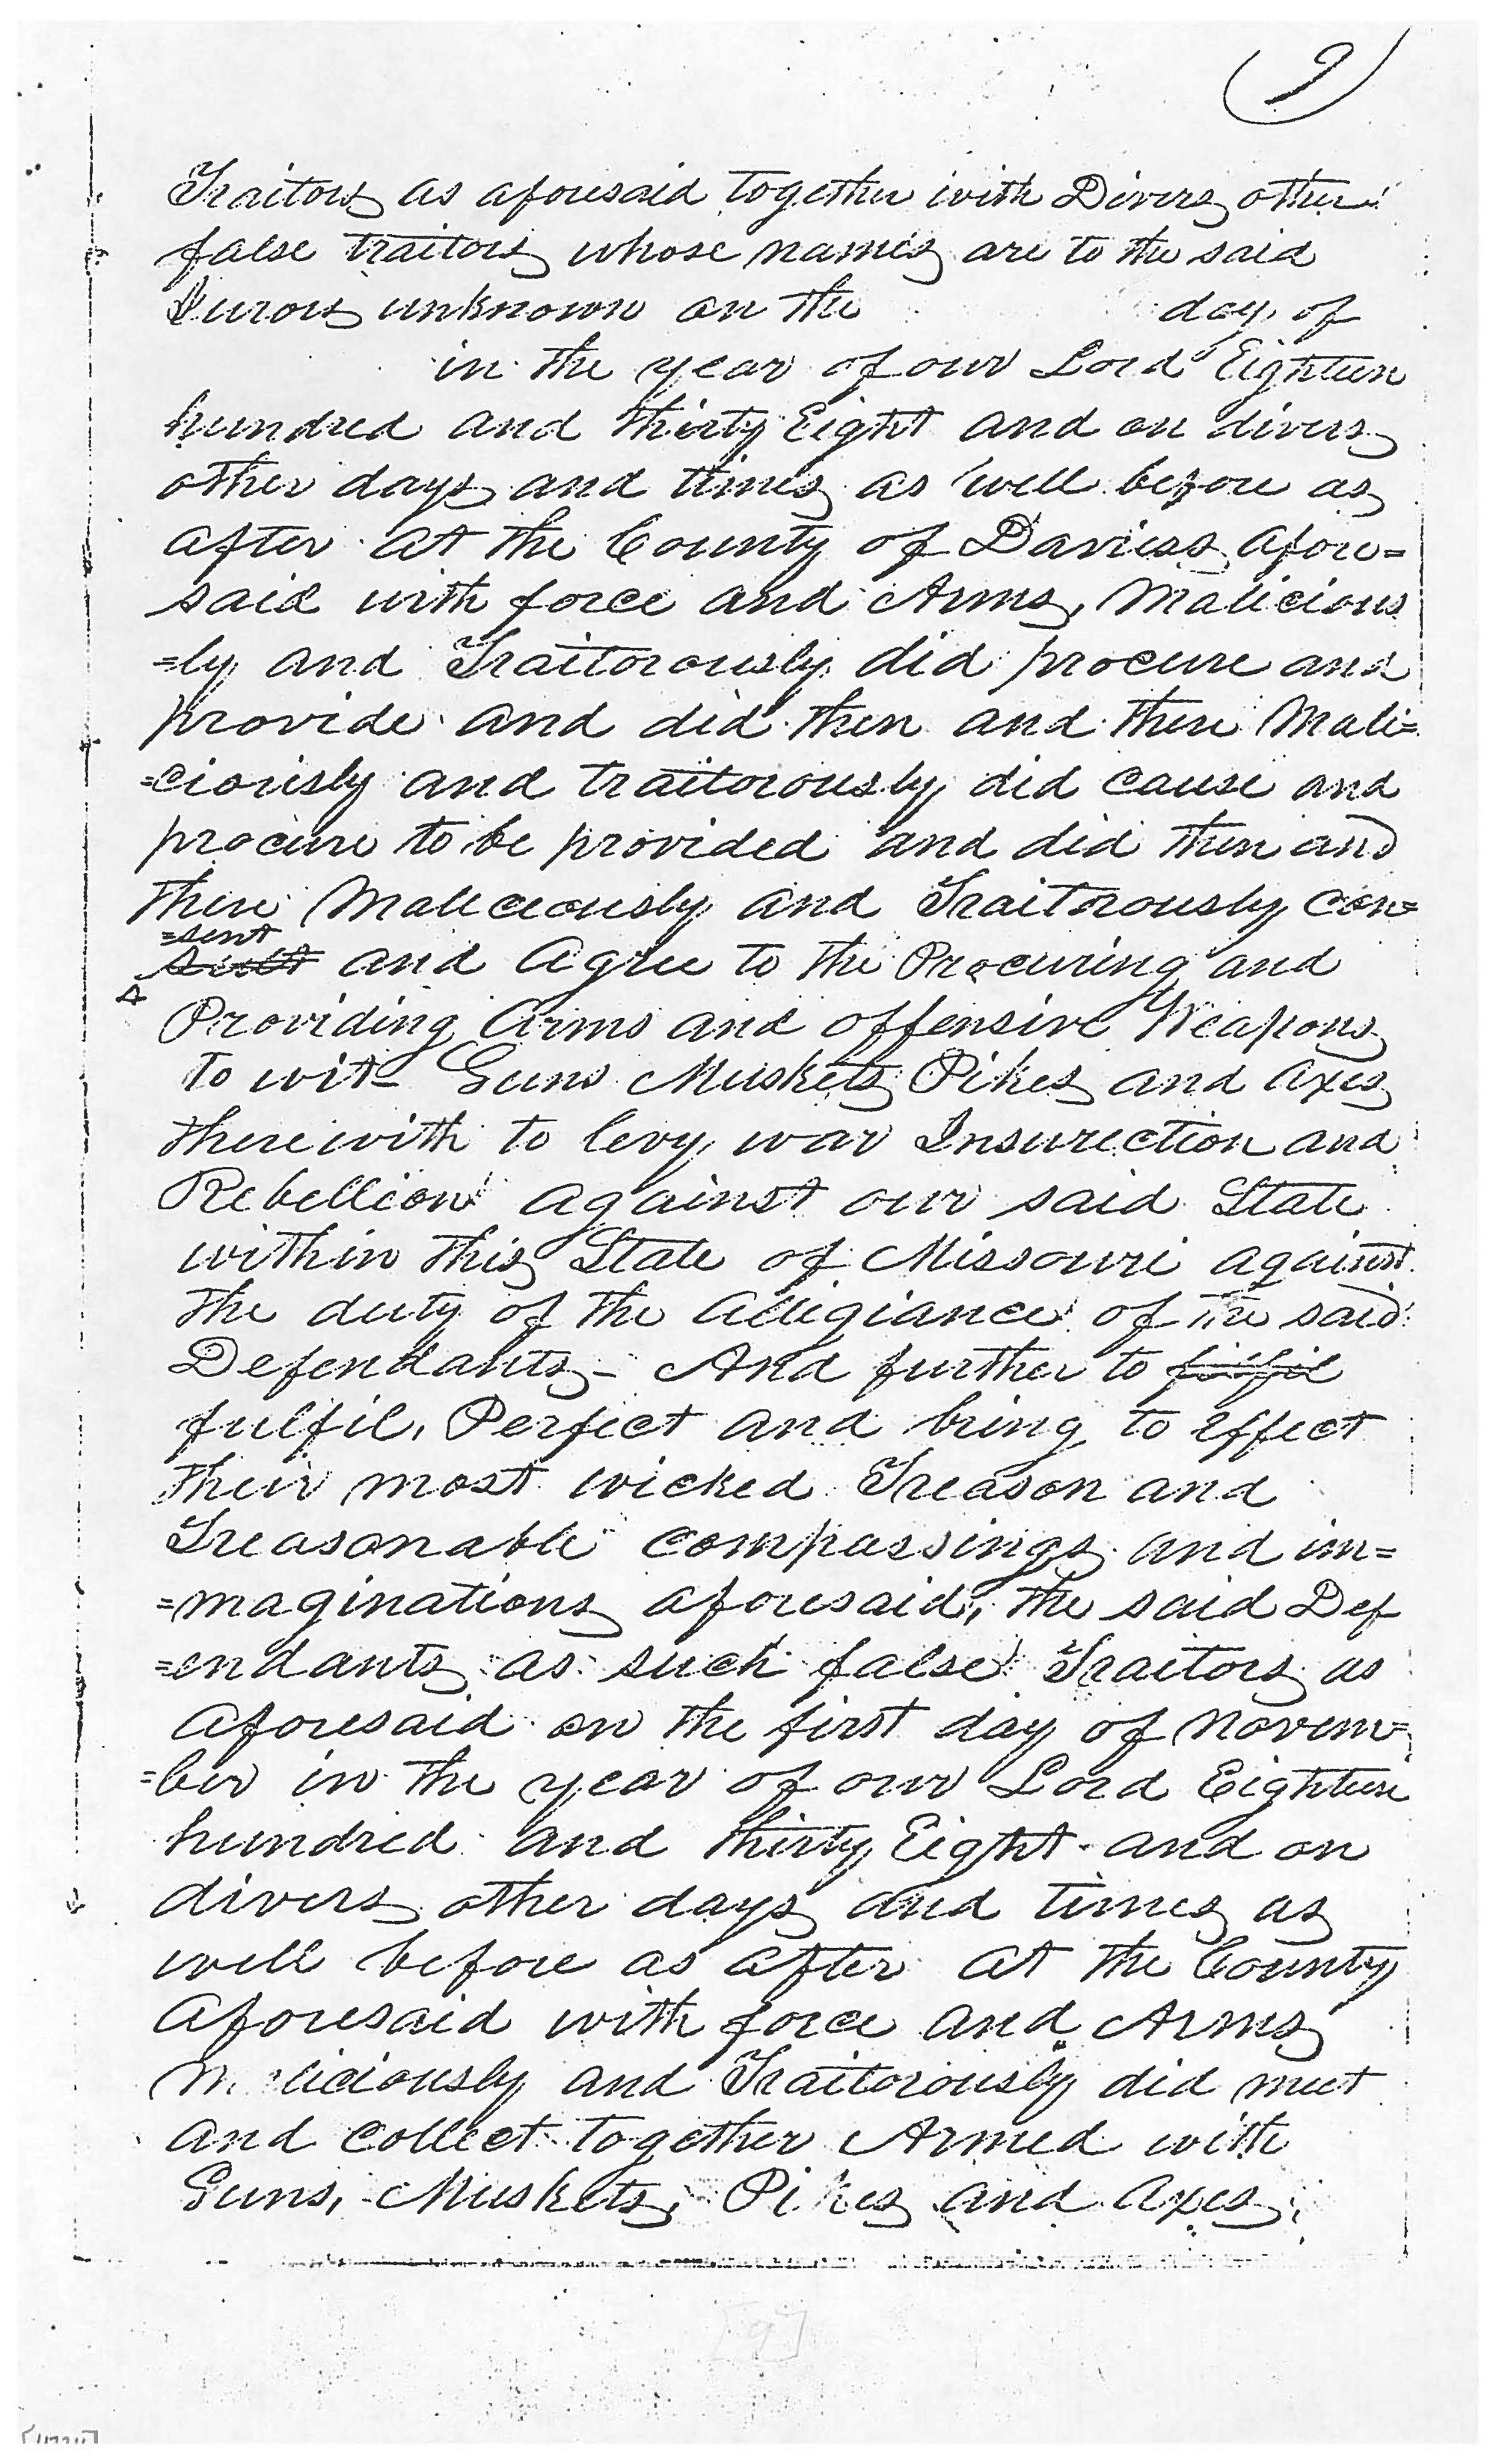 9
Traitors as aforesaid together with Divers other
false traitors whose names are to the said
Jurors unknown on the day of
in the year of our Lord Eighteen
hundred and Thirty Eight and on divers
other days and times as well before as
after at the County of Daviess afore=
said with force and Arms, Malicious
=ly and Traitorously did procure and
provide and did then and there Mali=
=ciously and traitorously did cause and
procure to be provided and did then and
there Maliciously and Traitorously con=
=sent
and Agree to the Procuring and
Providing Arms and offensive Weapons
to wit- Guns Muskets Pikes and Axes
therewith to levy war Insurection and
Rebellion against our said State
within this State of Missouri against
the duty of the Allegiance of the said
Defendants- And further to fulfil
fulfil, Perfect and bring to effect
their most wicked Treason and
Treasonable compassings and im=
=maginations aforesaid, the said Def
=endants as such false Traitors as
aforesaid on the first day of Novem=
=ber in the year of our Lord Eighteen
hundred and Thirty Eight and on
divers other days and times as
well before as after at the County
aforesaid with force and Arms
Maliciously and Traitorously did meet
and collect together Armed with
Guns, Muskets, Pikes and Axes,
[9]